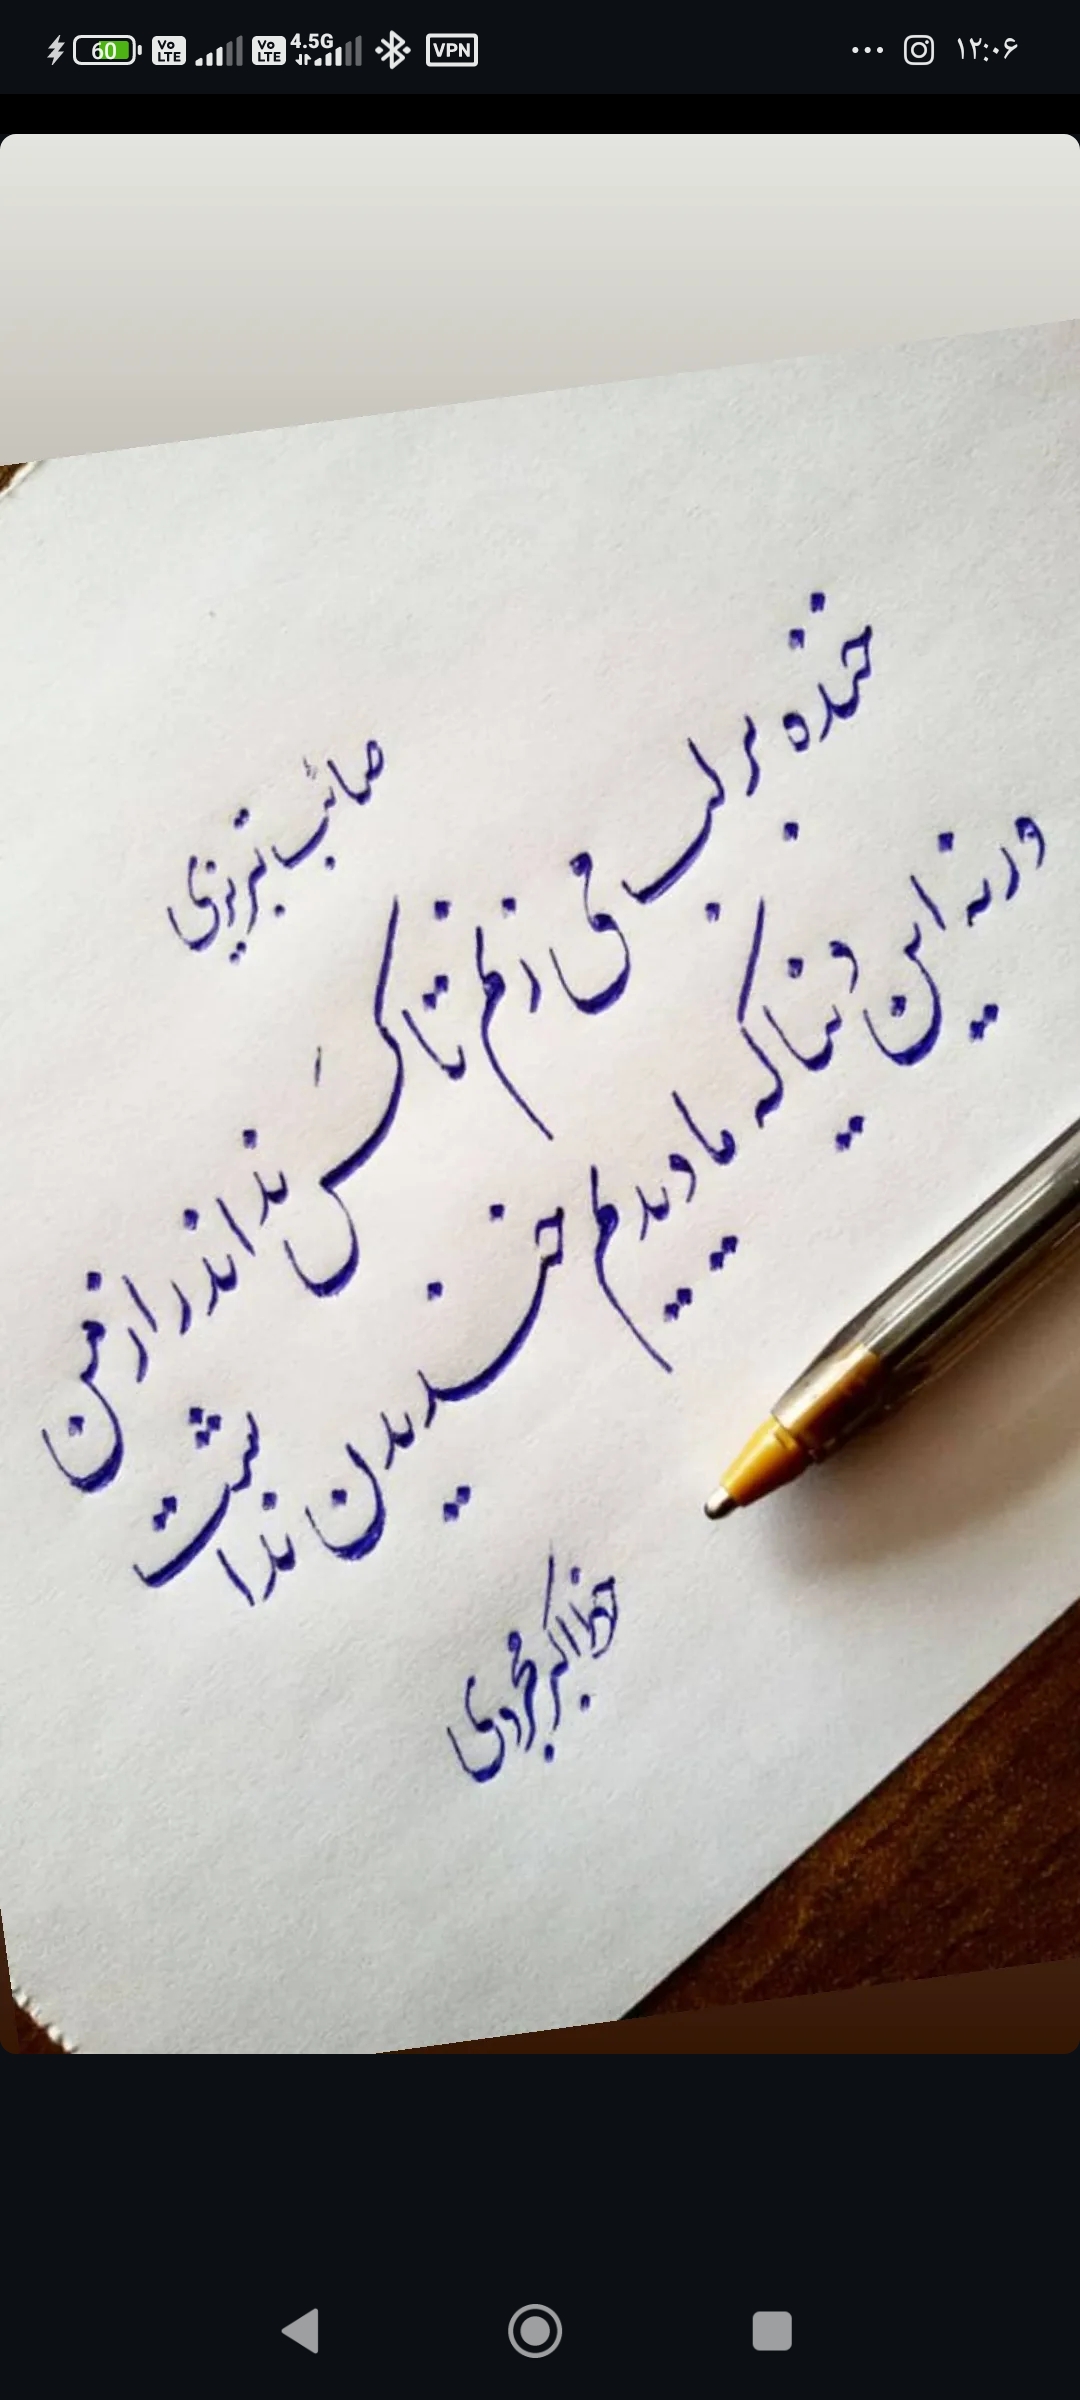 60 Vo LTE Vo LTE 4.5G VPN ... ۱۲:۰۶
صائب تبریزی
خنده بر لب می زنم تا کَس نداند راز من
ورنه این دنیا که ما دیدیم خندیدن نداشت
خط اکبر محمودی